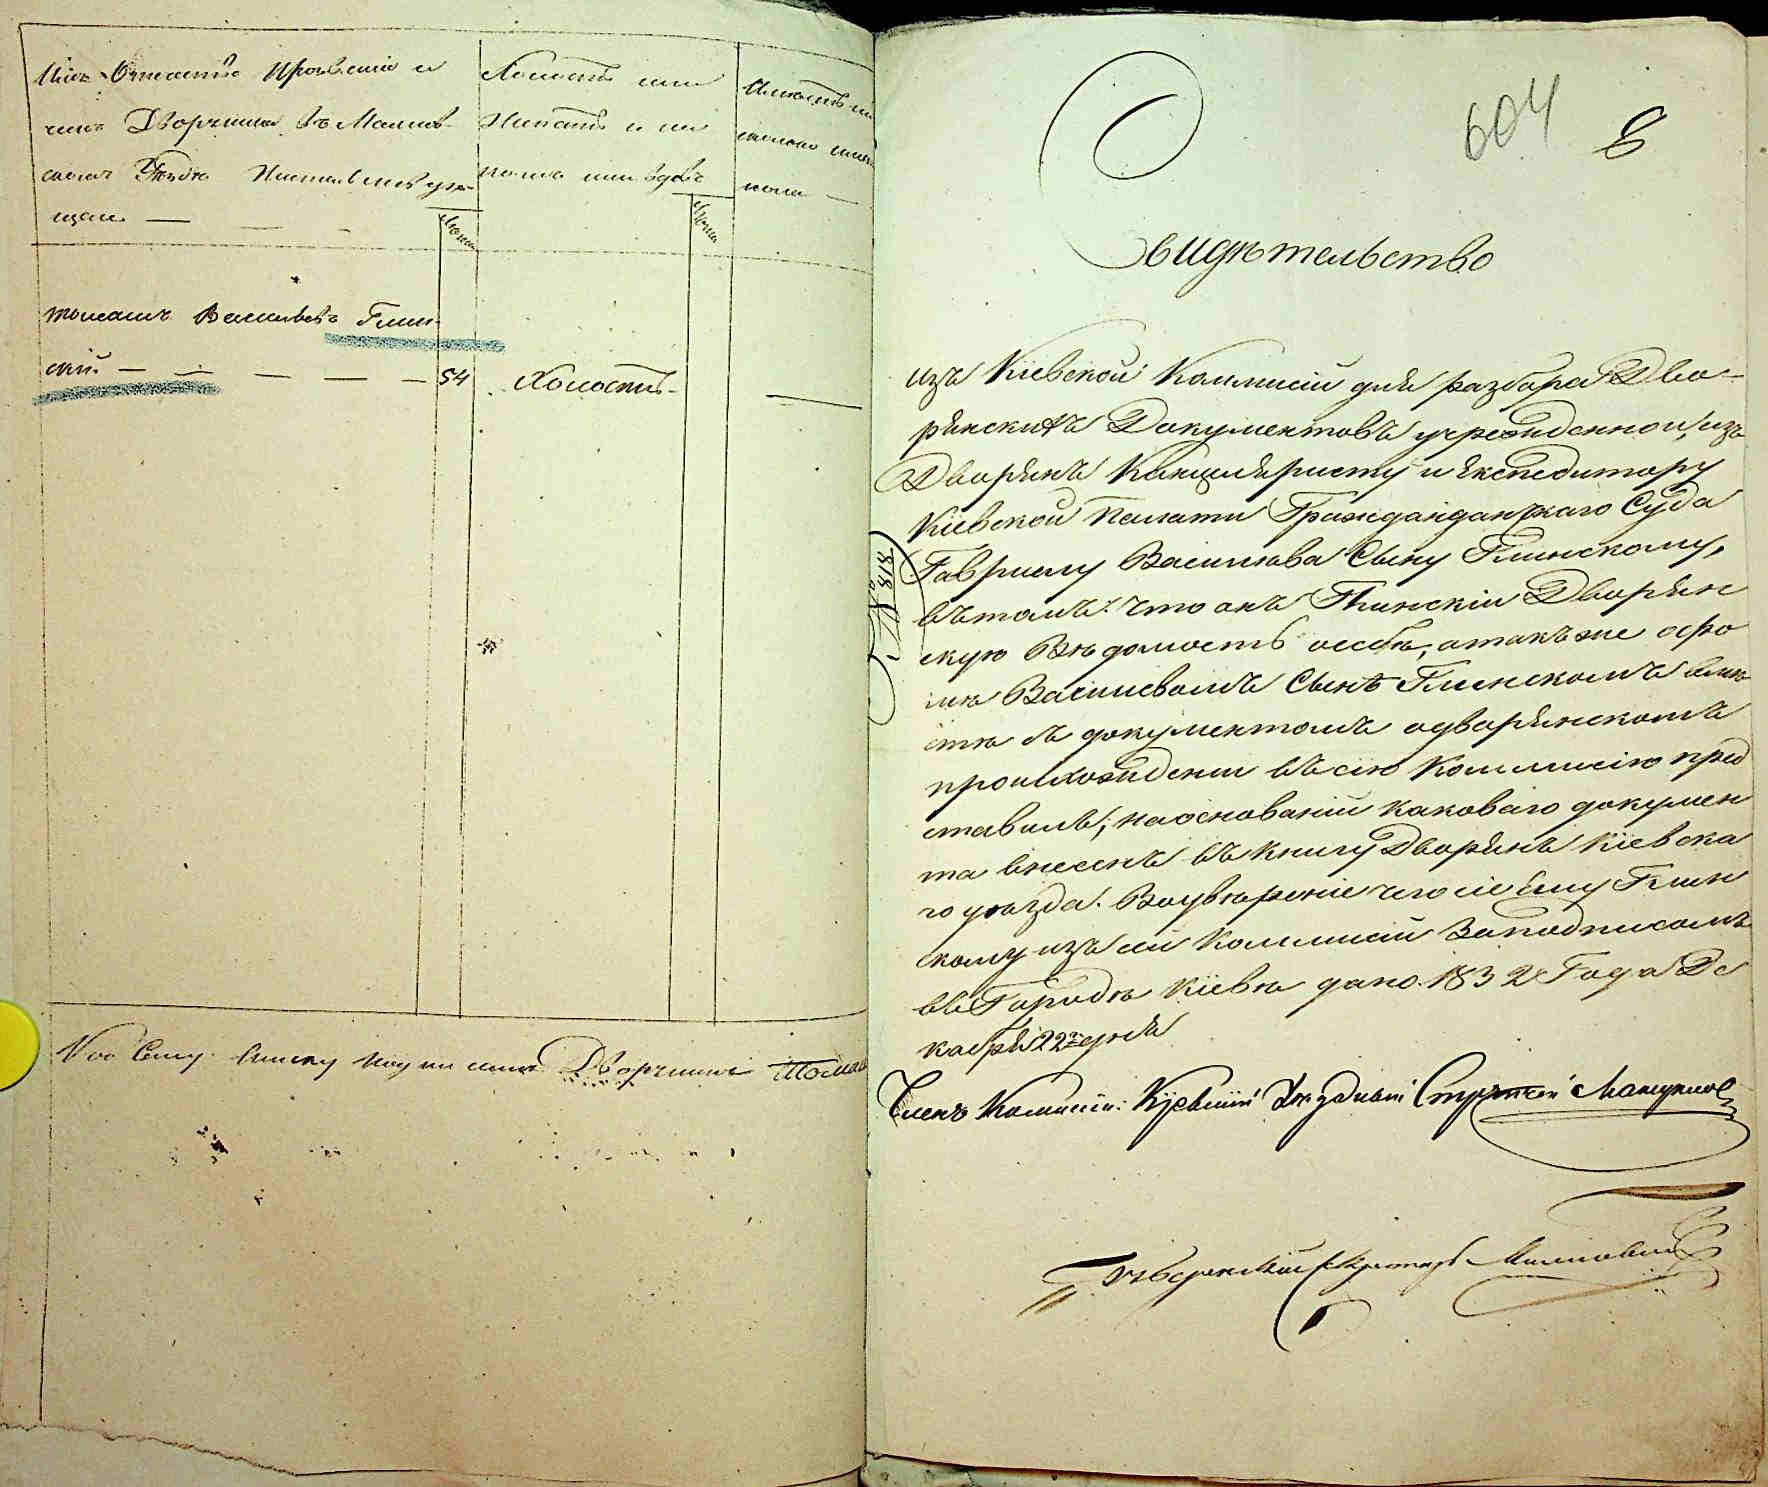 Имя Отчество Прозвание и
чинъ Дворянина въ Махнов-
скомъ Уездѣ
щаго
Лѣта
Холостъ или
Женатъ и на
комъ или вдовъ
Лѣта
Томашъ Васильевъ Глин-
скій. — — — — — 54
Холостъ.
Къ Сему Списку подписался Дворянинъ Томашъ
604
8
Свидѣтельство
№ 818
изъ Кіевской Коммисіи для разбора Дво-
рянскихъ Документовъ учрежденной, изъ
Дворянъ Канцеляристу и Експедитору
Кіевской Палати Гражданданскаго Суда
Гавриилу Васильева Сыну Глинскому,
въ томъ: что онъ Глинскій Дворян
скую Вѣдомость о себѣ, а такъ же о бра
Василіевомъ Сынѣ Глинскомъ вмѣ
стѣ съ документомъ о дворянскомъ
происхожденіи въ сію Коммисію пред
ставилъ; на основаніи каковаго докумен
та внесенъ въ книгу Дворянъ Кіевска
го уѣзда. Во увѣреніе чего сіе ему Глин
скому изъ сій Коммисіи За подписомъ
въ Городѣ Кіевѣ дано 1832 Года Де
кабря 22го дня
Членъ Комисіи: Кіевскій Уѣздный Стряпчій
Губернскій Секретарь